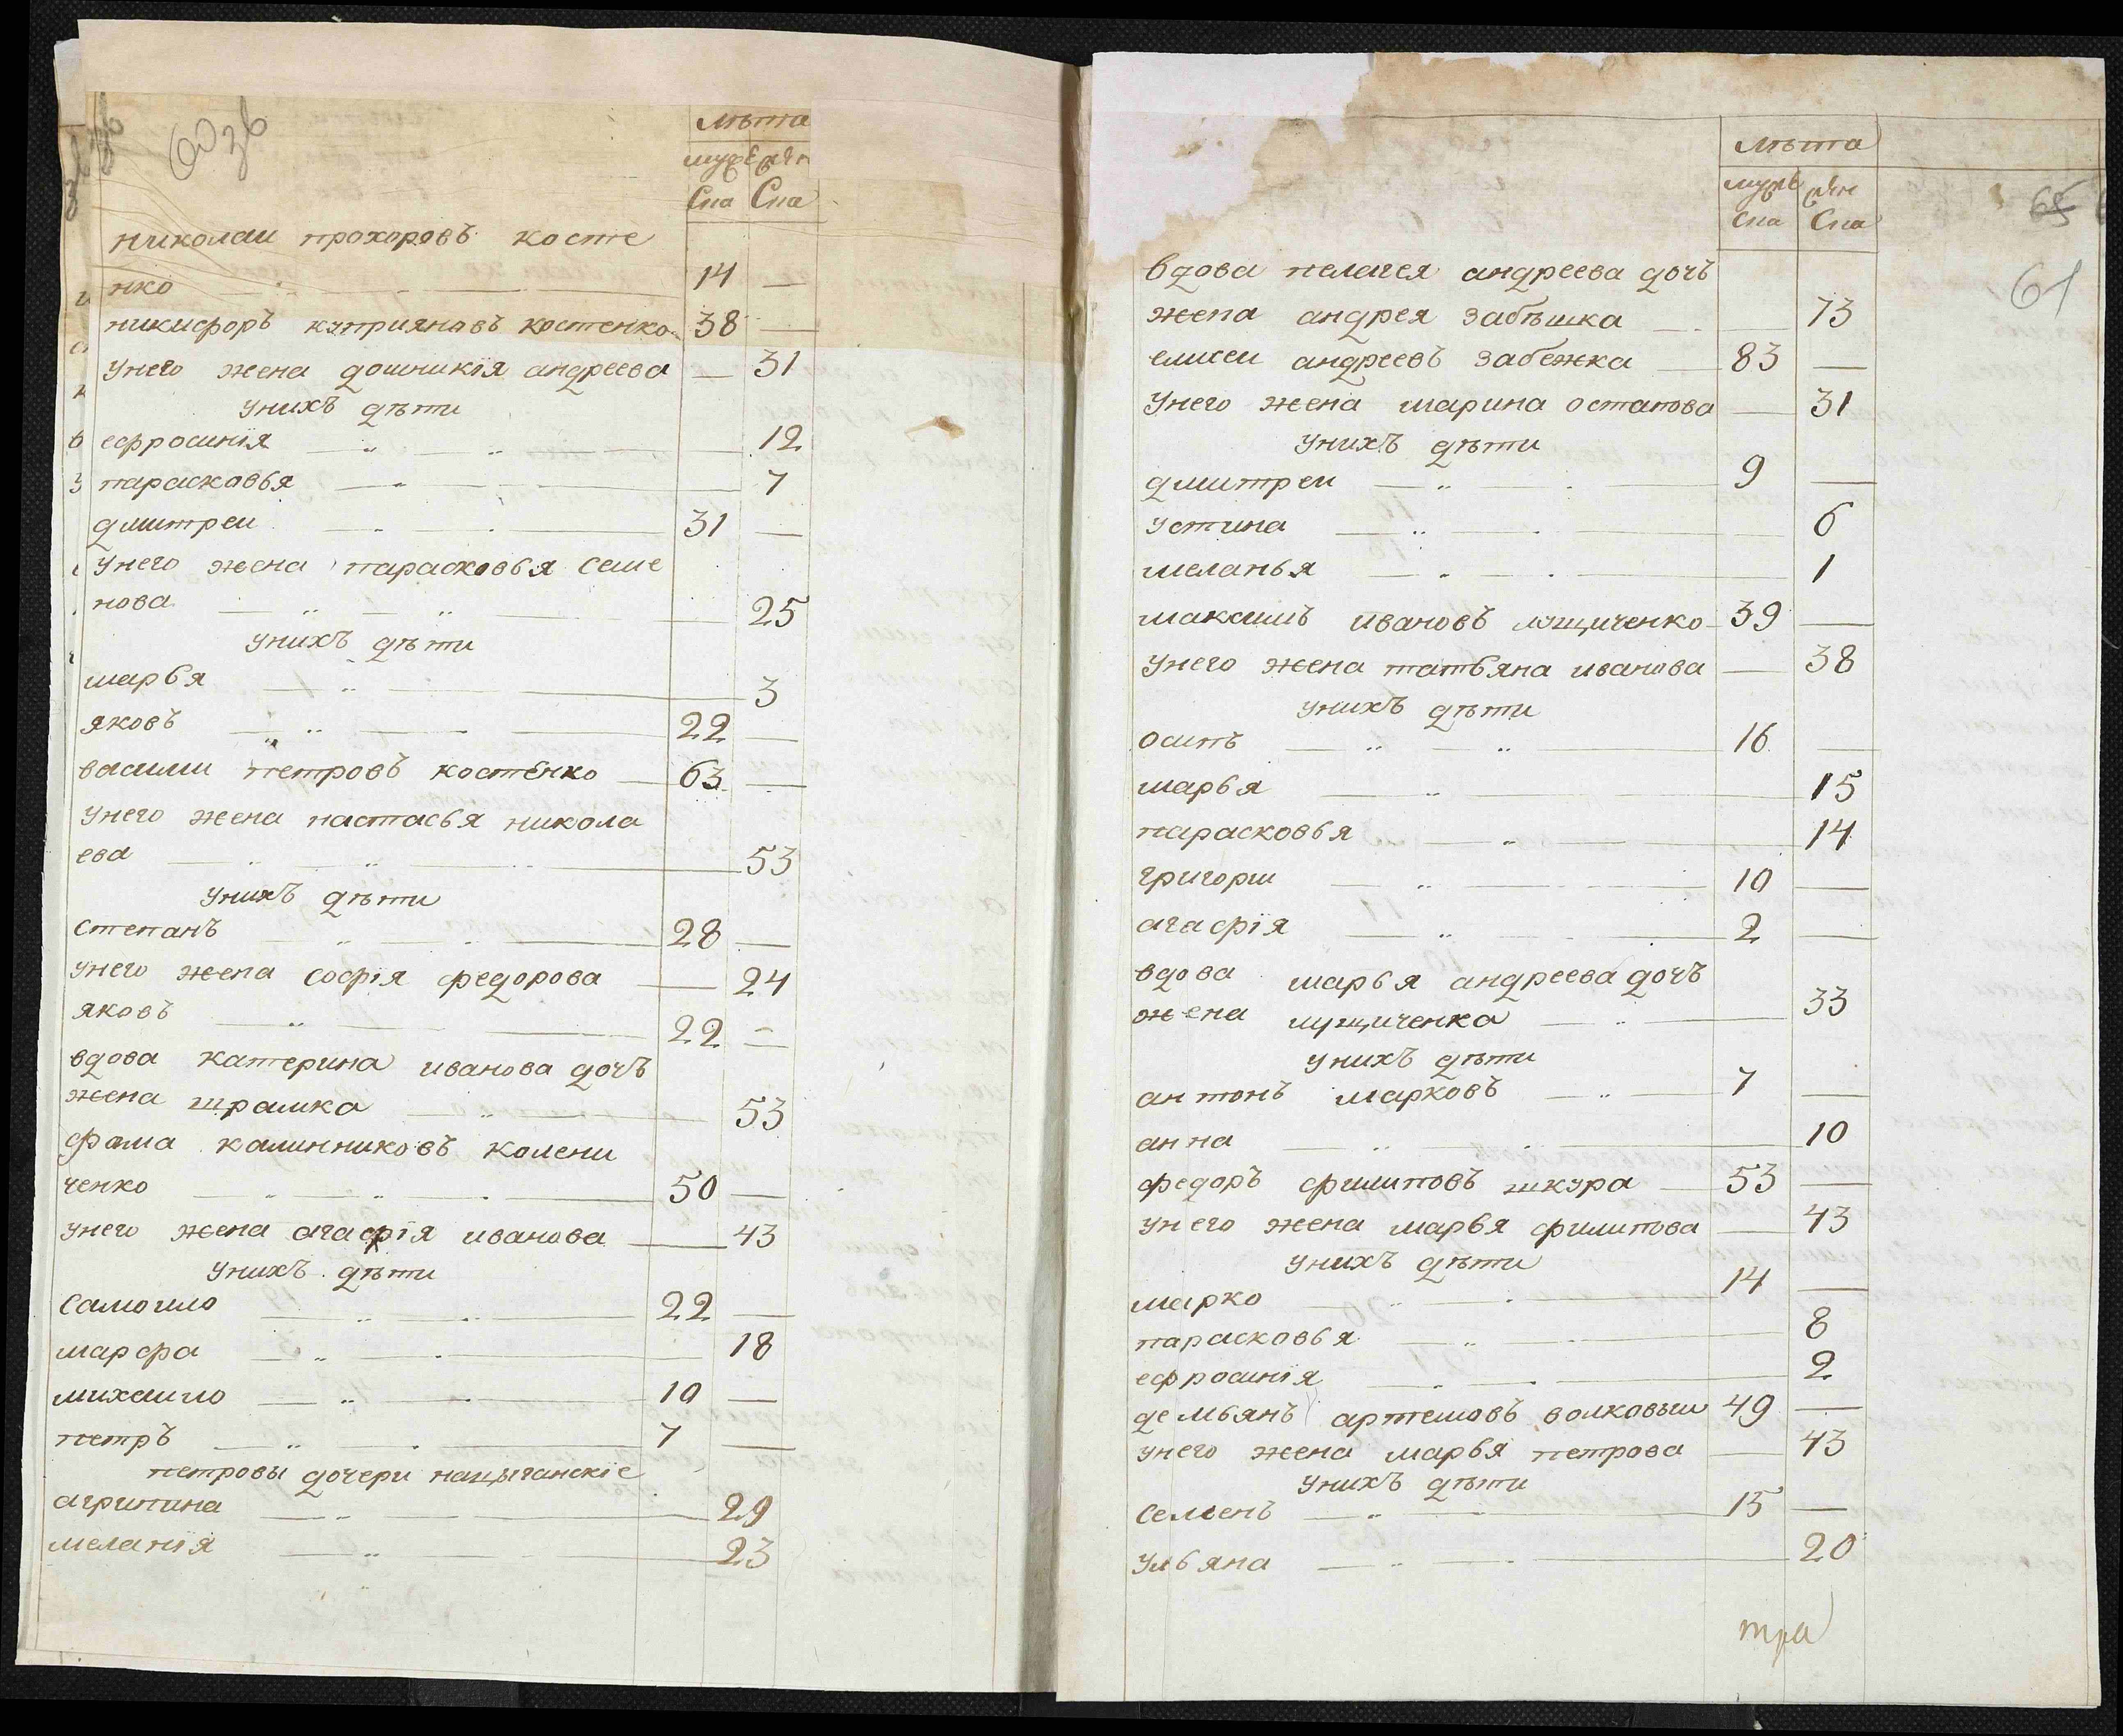 60 зв
Лѣта
муже женс
ска ска
николаи прохоровъ косте
нко 14 —
никифоръ куприяновъ костенко 38 —
унего жена домникїя андреева — 31
унихъ дѣти
ефросинїя — 12
парасковья — 7
дмитреи 31 —
унего жена парасковья семе
нова — 25
унихъ дѣти
марья — 3
яковъ 22 —
васили петровъ костенко 63 —
унего жена настасья никола
ева — 53
унихъ дѣти
степанъ 28 —
унего жена софїя федорова — 24
яковъ 22 —
вдова катерина иванова дочъ
жена шрамка — 53
фама калинниковъ колени
ченко 50 —
унего жена агафїя иванова — 43
унихъ дѣти
самоило 22 —
марфа — 18
михаило 10 —
петръ 7 —
петровы дочери нацыганскїе
агрипина — 29
меланїя — 23
Лѣта
муже женс
ска ска
65
61
вдова пелагея андреева дочъ
жена андрея забѣшка — 73
елисеи андреевъ забежка 83 —
унего жена марина остапова — 31
унихъ дѣти
дмитреи 9 —
устина — 6
меланья — 1
максимъ ивановъ лущиченко 39 —
унего жена татьяна иванова — 38
унихъ дѣти
осипъ 16 —
марья — 15
парасковья — 14
григории 10 —
агафїя 2 —
вдова марья андреева дочъ
жена лущиченка — 33
унихъ дѣти
антонъ марковъ 7 —
анна — 10
федоръ филиповъ шкура 53 —
унего жена марья филипова — 43
унихъ дѣти
марко 14 —
парасковья — 8
ефросинїя — 2
демьянъ артемовъ волковыи 49 —
унего жена марья петрова — 43
унихъ дѣти
семенъ 15 —
ульяна — 20